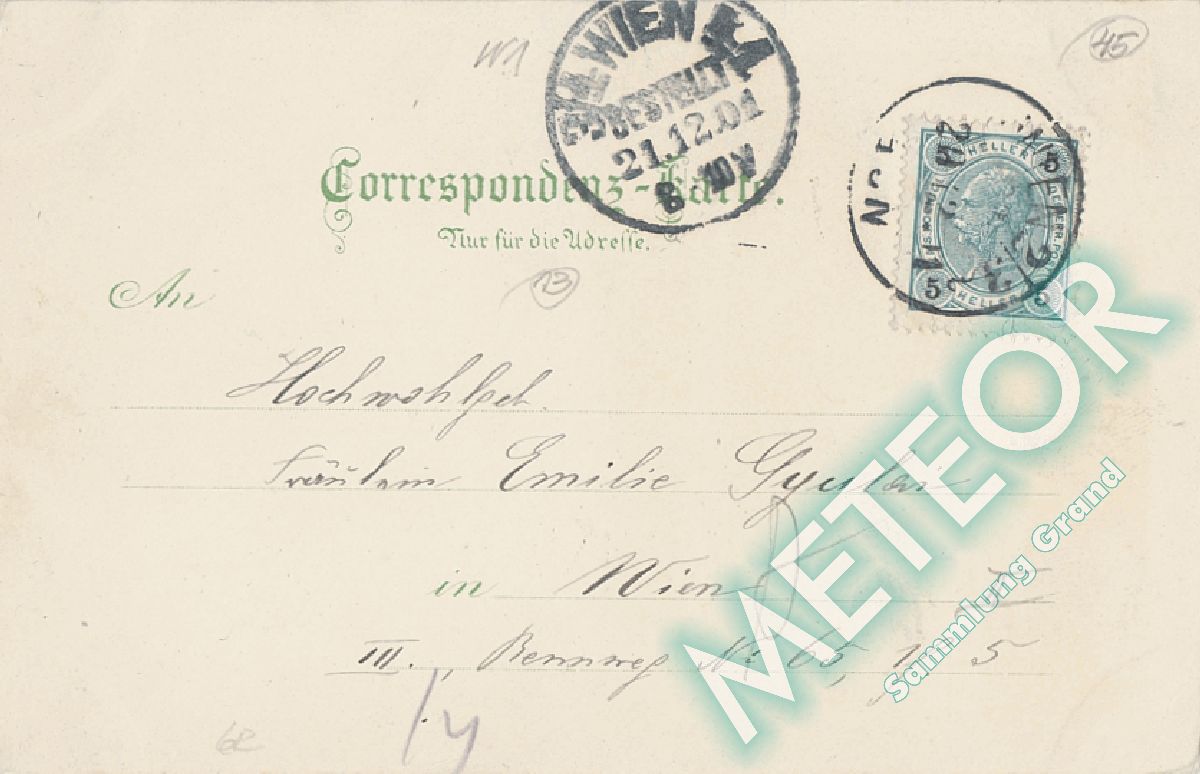 W1
45
3/4 WIEN 4
BESTELLT
21.12.01
8. 10V
5 HELLER 5
5 HELLER 5
Correspondenz-Karte.
Nur für die Adresse.
13
An
Hochwohlgeb.
Fräulein Emilie Gyulai
in Wien
III., Rennweg No 65, 5
62
METEOR
Sammlung Grand